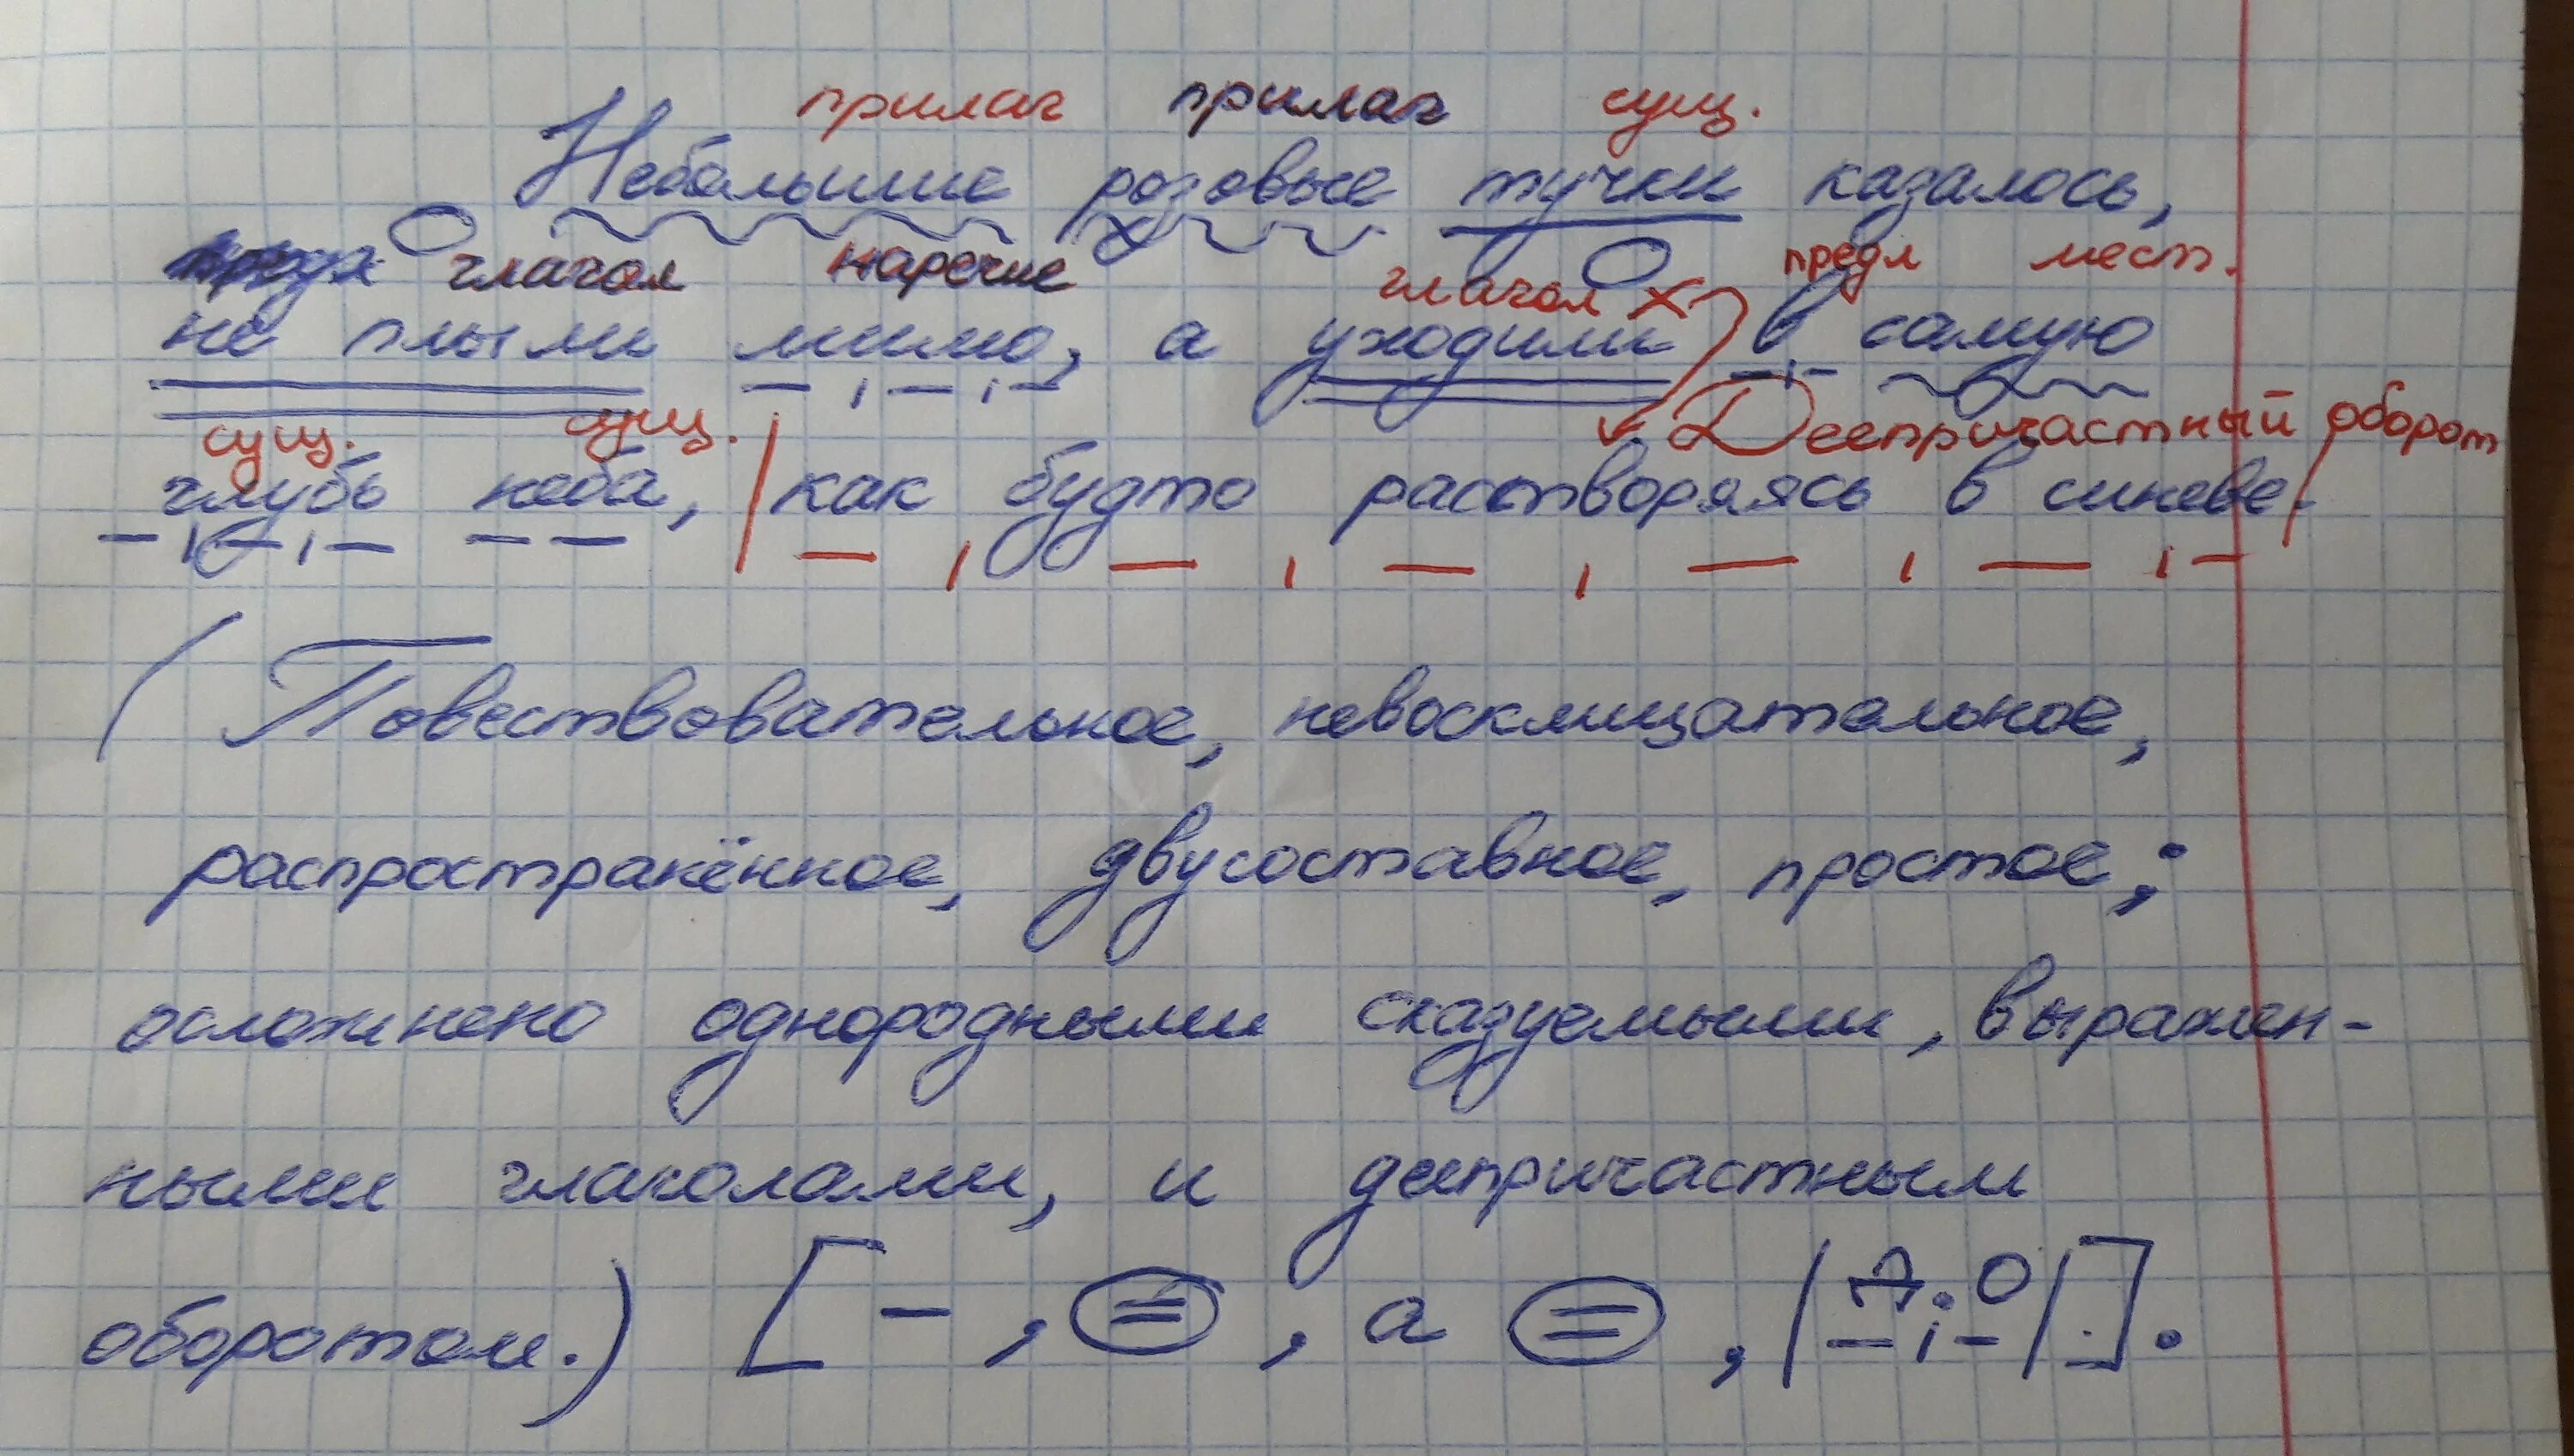 прилаг прилаг сущ.
Небольшие розовые тучки казалось,
глагол наречие глагол предл мест.
не плыли мимо, а уходили в самую
сущ. сущ. Деепричастный оборот
глубь неба, как будто растворяясь в синеве.
(Повествовательное, невосклицательное,
распространённое, двусоставное, простое;
осложнено однородными сказуемыми, выражен-
ными глаголами, и деепричастным
оборотом.) [– , =, а =, |Д.О|].